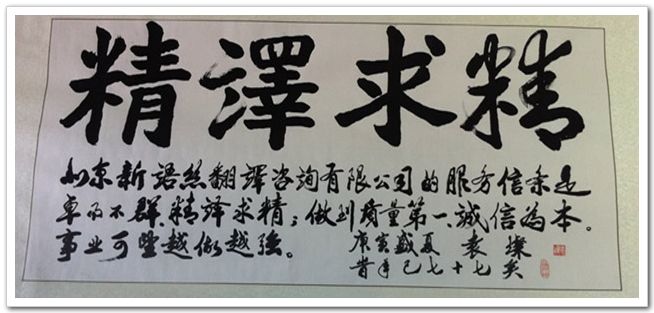 精澤求精
北京新語絲翻譯咨詢有限公司的服务信条是
卓而不群、精译求精；做到质量第一、誠信為本。
事业可望越做越强。
庚寅盛夏 袁燦
年已七十七矣